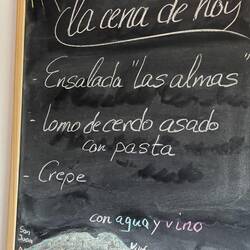 la cena de hoy
- Ensalada "Las almas"
- Lomo de cerdo asado
con pasta
- Crepe
con agua y vino
San
Juan